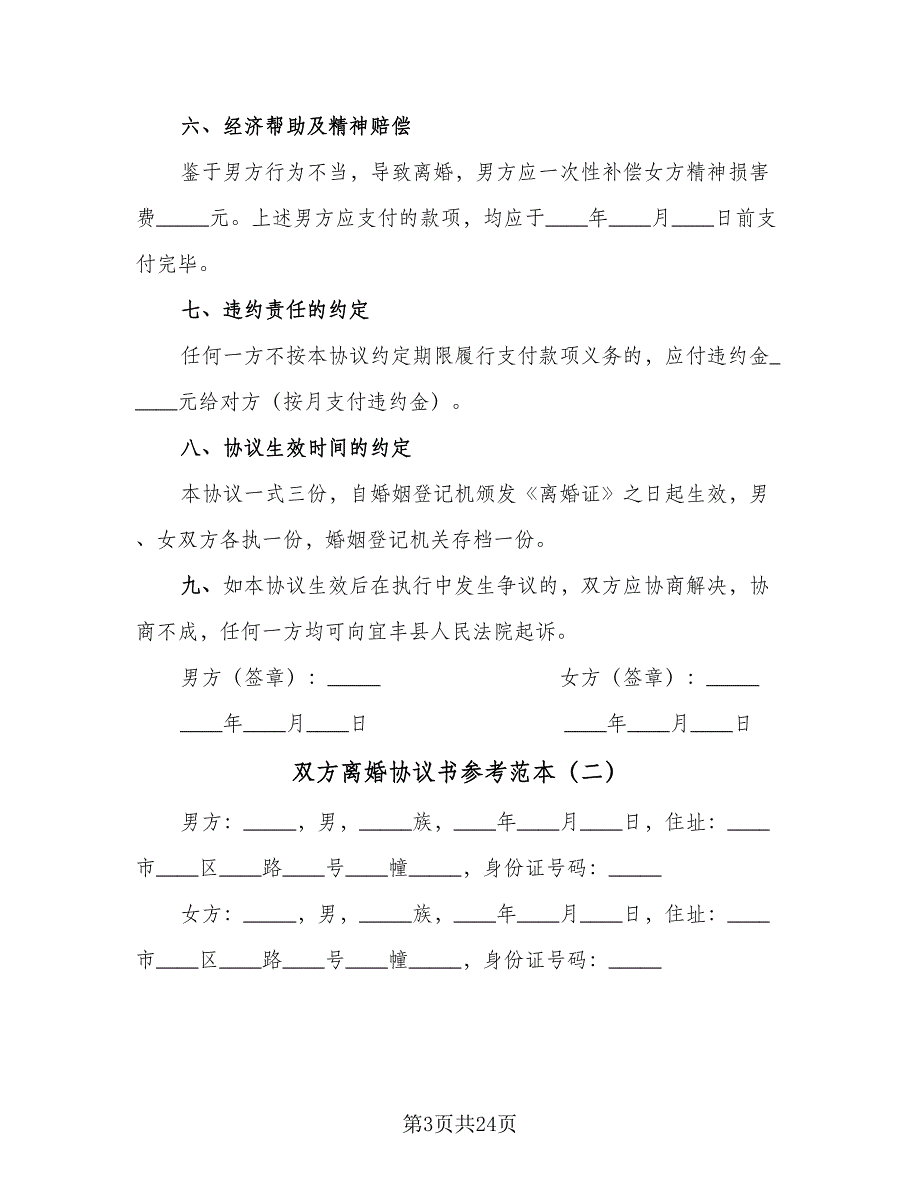 六、经济帮助及精神赔偿
鉴于男方行为不当，导致离婚，男方应一次性补偿女方精神损害
费_____元。上述男方应支付的款项，均应于____年____月____日前支
付完毕。
七、违约责任的约定
任何一方不按本协议约定期限履行支付款项义务的，应付违约金_
____元给对方（按月支付违约金）。
八、协议生效时间的约定
本协议一式三份，自婚姻登记机颁发《离婚证》之日起生效，男
、女双方各执一份，婚姻登记机关存档一份。
九、如本协议生效后在执行中发生争议的，双方应协商解决，协
商不成，任何一方均可向宜丰县人民法院起诉。
男方（签章）：_____ 女方（签章）：_____
____年____月____日 ____年____月____日
双方离婚协议书参考范本（二）
男方：_____，男，_____族，____年____月____日，住址：____
市____区____路____号____幢_____，身份证号码：_____
女方：_____，男，_____族，____年____月____日，住址：____
市____区____路____号____幢_____，身份证号码：_____
第3页共24页